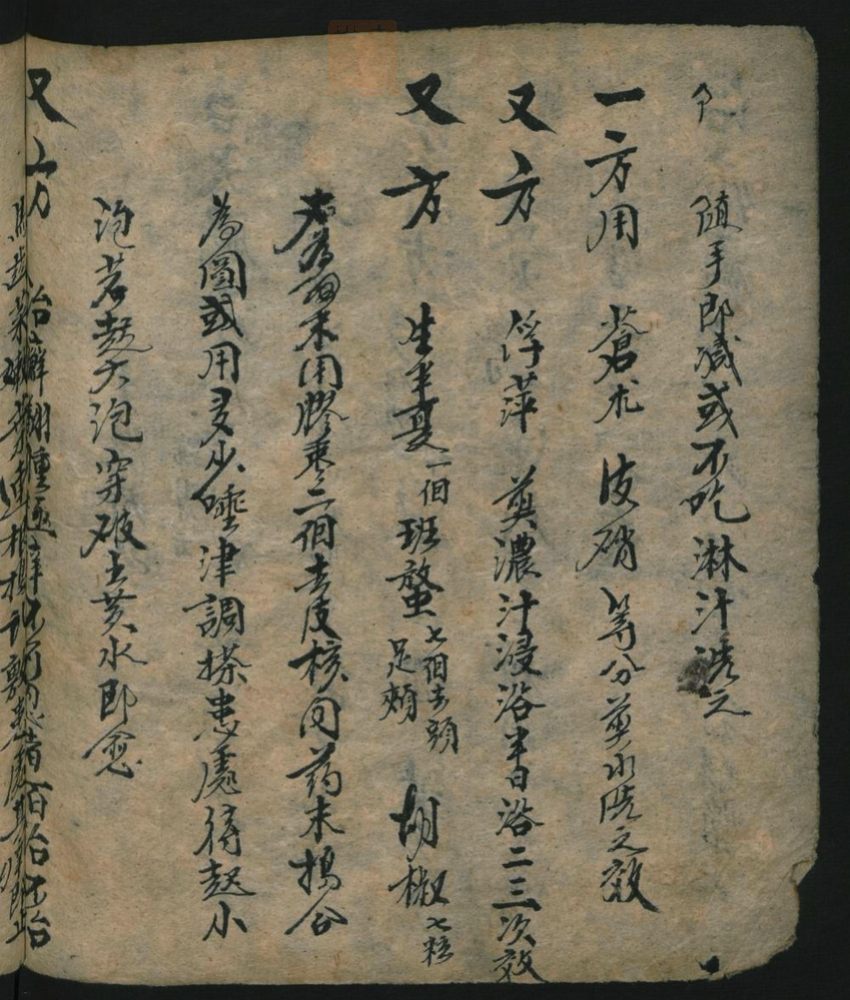 隨手即減或不吃淋汁洗之
一方用 蒼朮 皮硝 等分煎水洗之效
又方 浮萍 煎濃汁浸浴半日浴二三次效
又方 生半夏一個 班蝥七個去頭足 胡椒七粒
右為細末用膠棗二個去皮核同药末搗合
為圓或用多少唾津調搽患處待起小
泡若起大泡穿破出黄水即愈
又方 治癬 百治不治